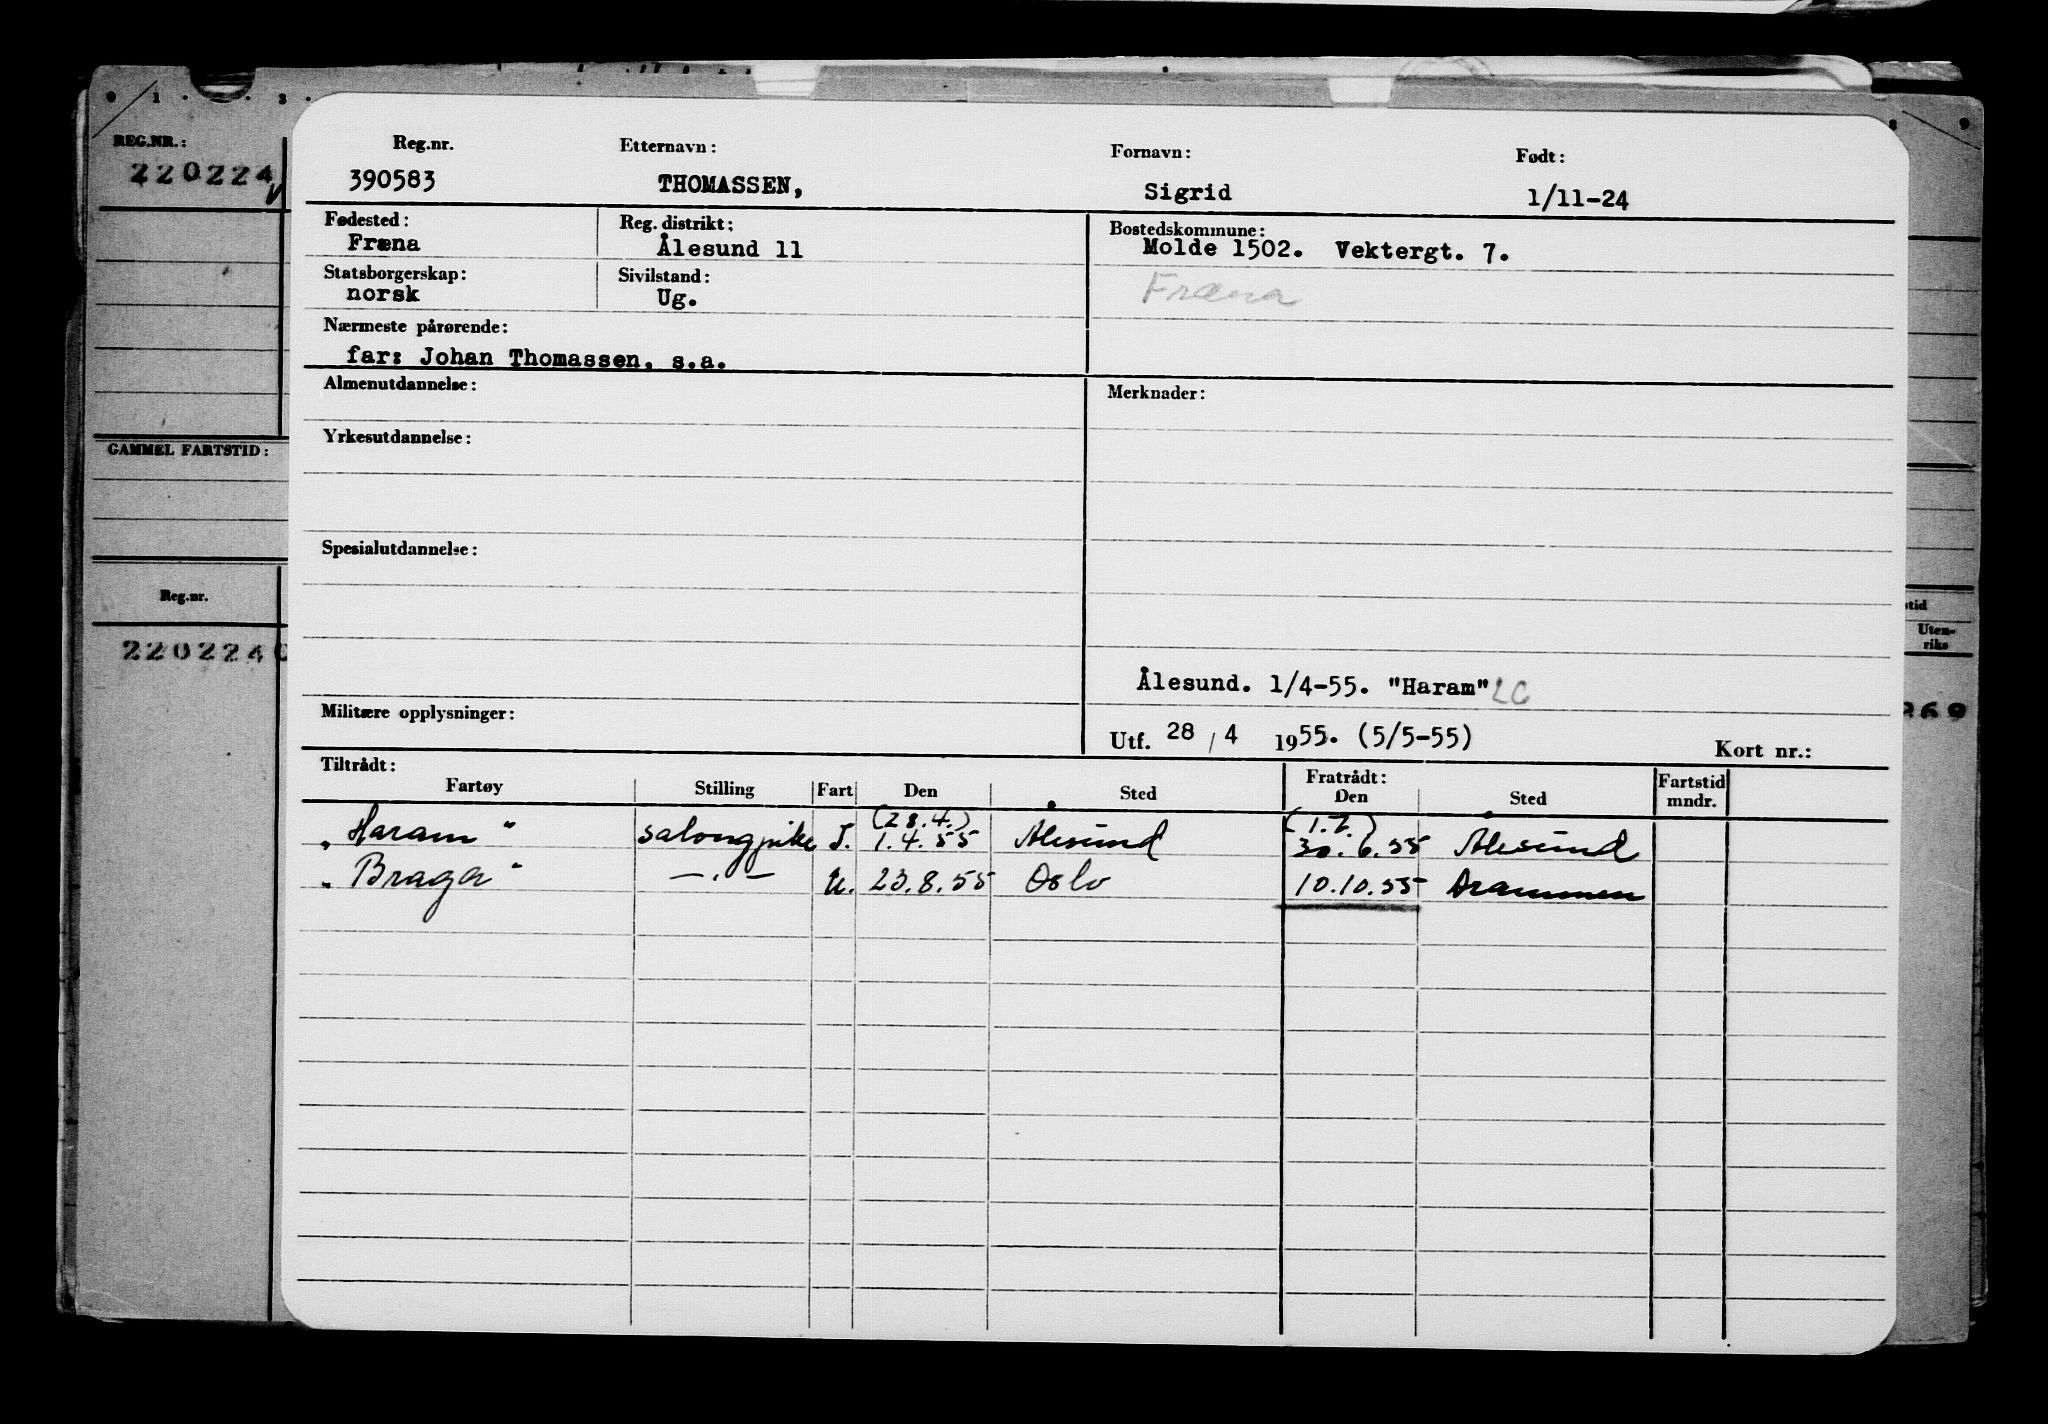 REG.NR.:
220224
GAMMEL FARTSTID:
Reg.nr.
220224
Reg.nr. Etternavn: Fornavn: Født:
390583 THOMASSEN, Sigrid 1/11-24
Fødested: Reg. distrikt: Bostedskommune:
Fræna Ålesund 11 Molde 1502. Vektergt. 7.
Statsborgerskap: Sivilstand:
norsk Ug. Fræna
Nærmeste pårørende:
far: Johan Thomassen, s.a.
Almenutdannelse: Merknader:
Yrkesutdannelse:
Spesialutdannelse:
Ålesund. 1/4-55. "Haram" LC
Militære opplysninger:
Utf. 28 / 4 1955. (5/5-55) Kort nr.:
Tiltrådt: Fratrådt: Fartstid
Fartøy Stilling Fart Den Sted Den Sted mndr.
(28.4.) (1.7.)
"Haram" salongpike I. 1.4.55 Ålesund 30.6.55 Ålesund
"Braga" —.— U. 23.8.55 Oslo 10.10.55 Drammen
8 9
stid
Uten-
riks
269